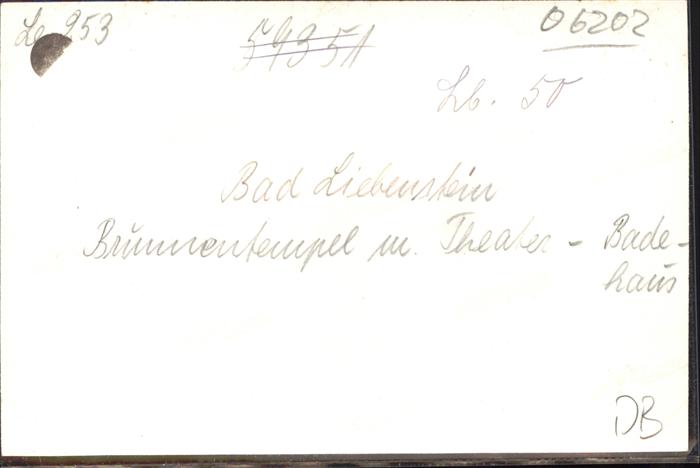 Le 253
59351
06202
Lb. 50
Bad Liebenstein
Brunnentempel m. Theater - Bade-
haus
DB